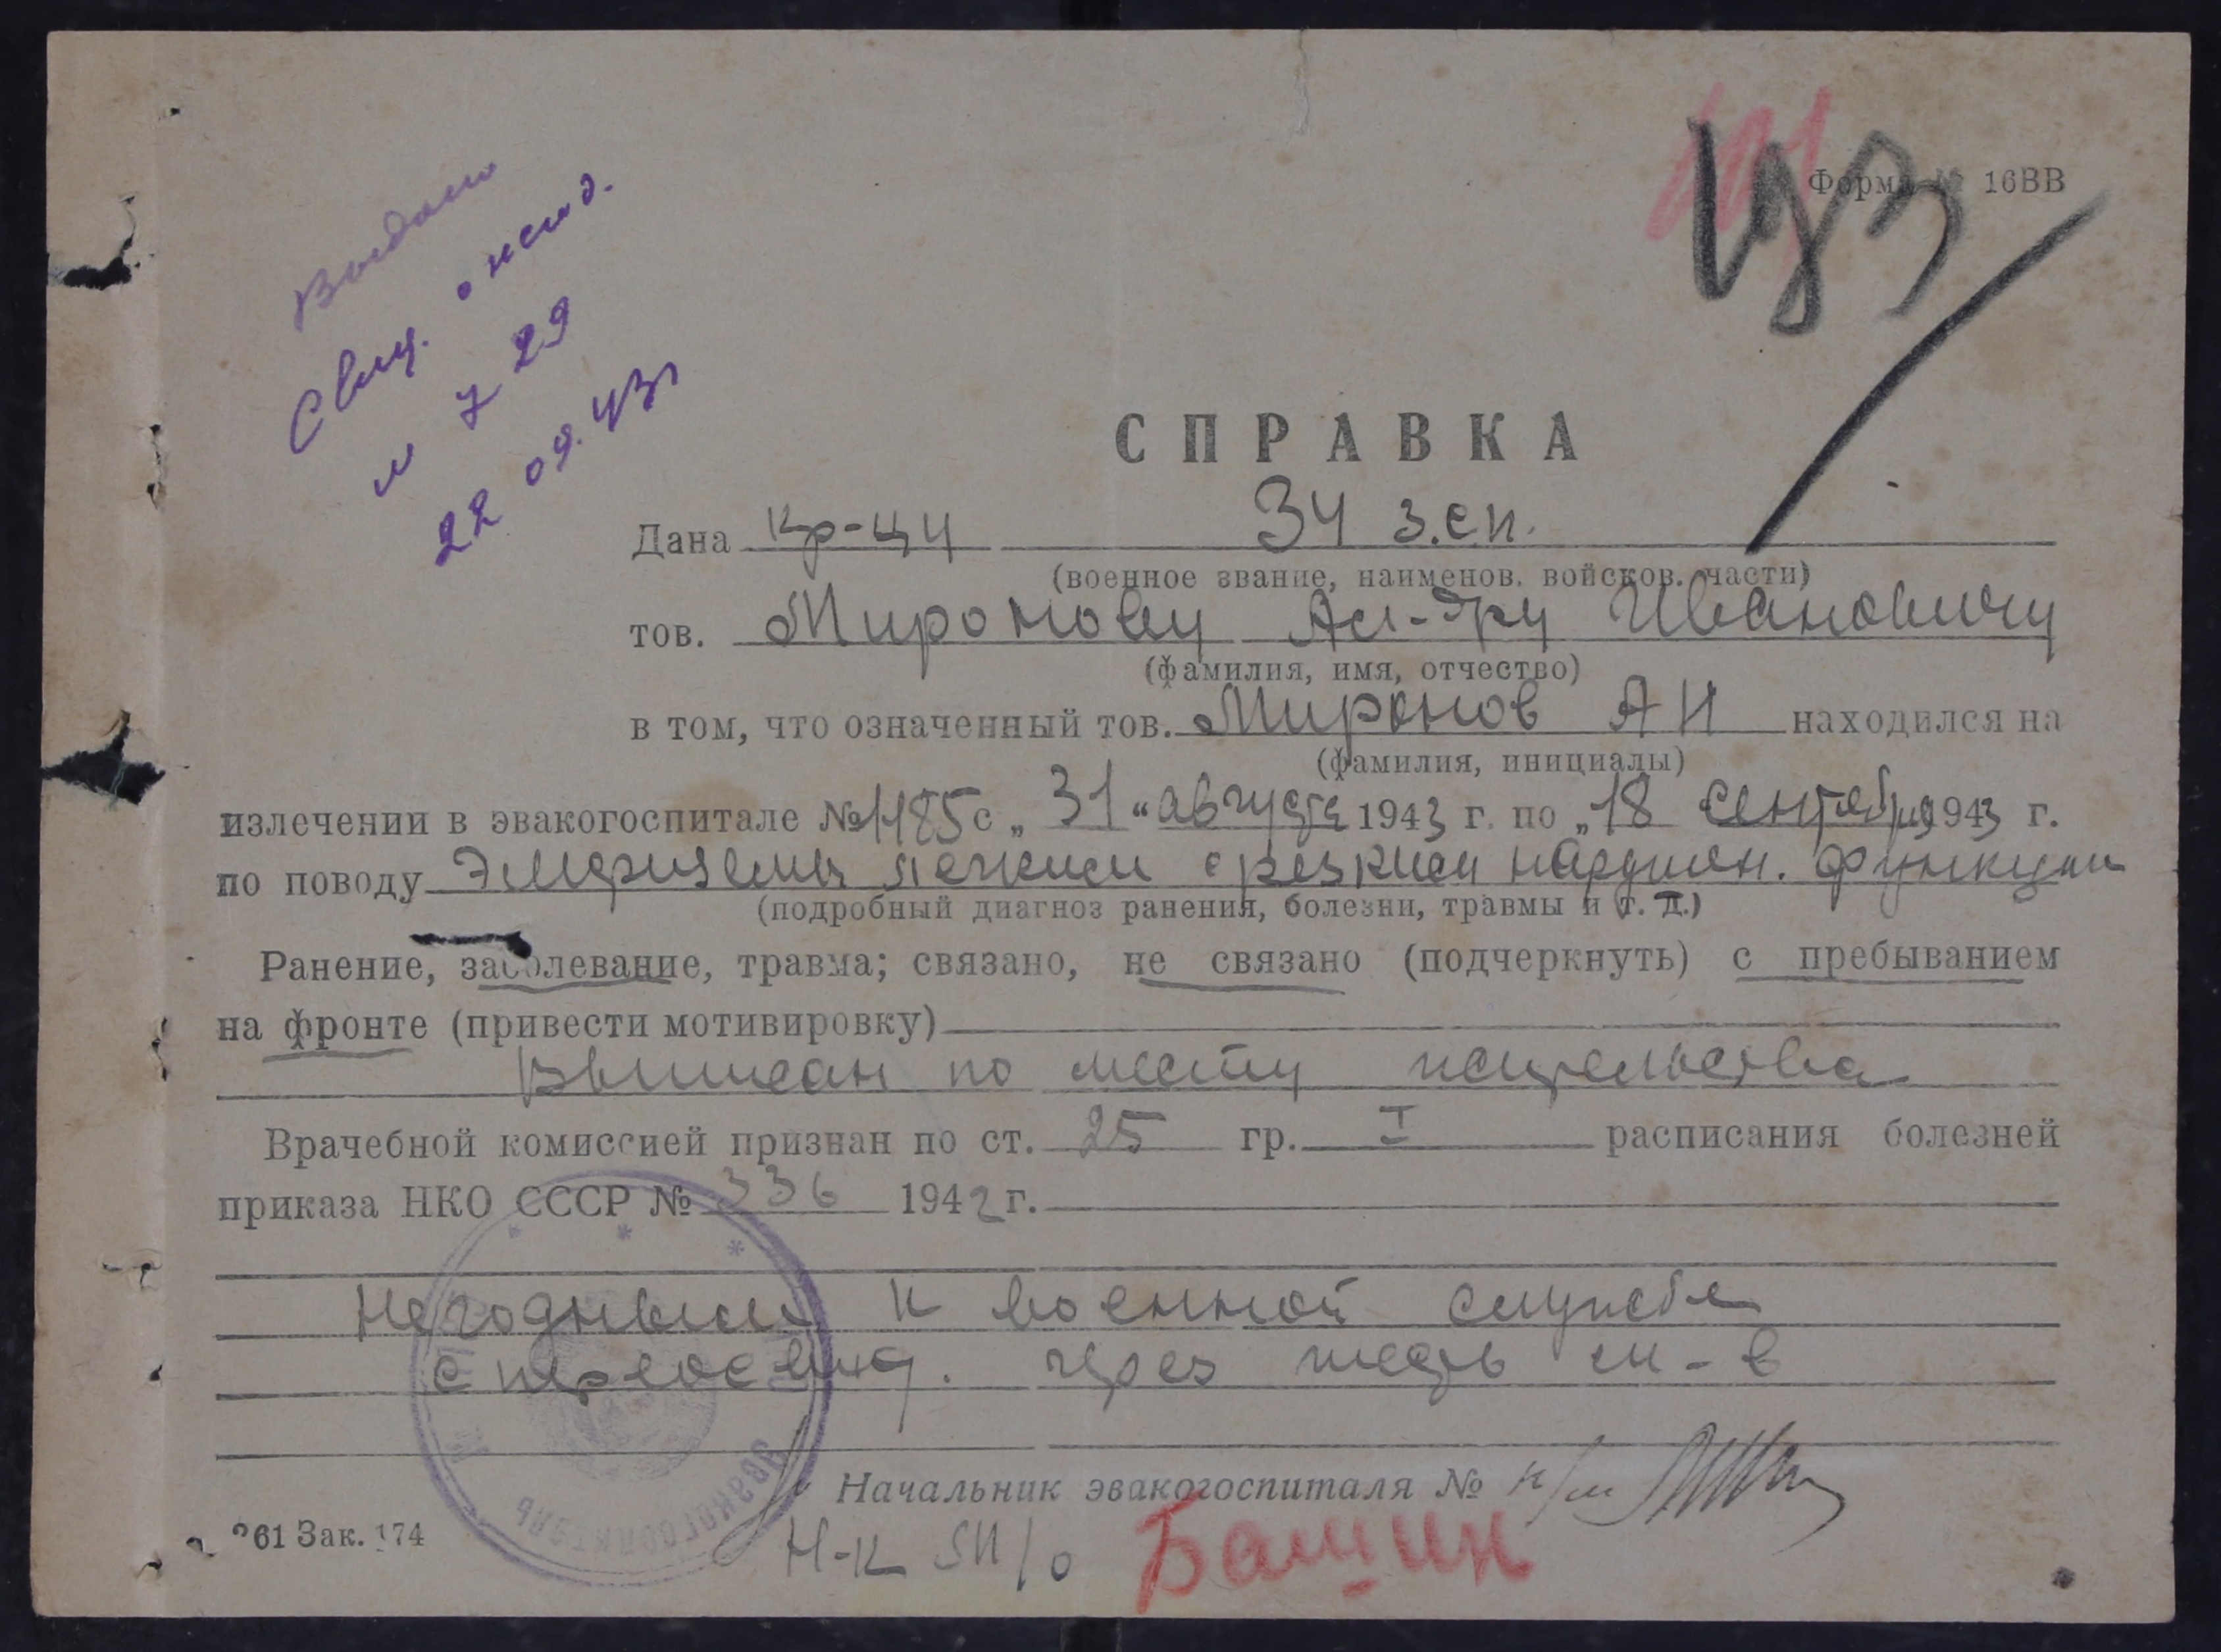 Выдано
Свид. о
№ 729
22 09.43г
43
Форма № 16ВВ
СПРАВКА
Дана кр-цу 34 з.сп.
(военное звание, наименов. войсков. части)
тов. Миронову Ал-дру Ивановичу
(фамилия, имя, отчество)
в том, что означенный тов. Миронов А И находился на
(фамилия, инициалы)
излечении в эвакогоспитале № 1185 с „31“ августа 1943 г. по „18 сентября 1943 г.
по поводу Эмфиземы легких с резким нарушен. функции
(подробный диагноз ранения, болезни, травмы и т. д.)
Ранение, заболевание, травма; связано, не связано (подчеркнуть) с пребыванием
на фронте (привести мотивировку)
Выписан по месту жительства
Врачебной комиссией признан по ст. 25 гр. I расписания болезней
приказа НКО СССР № 336 1942 г.
Негодным к военной службе
с переосвид. через шесть м-в
Начальник эвакогоспиталя №
Эвакогоспиталь
261 Зак. 174
Н-к
Башин